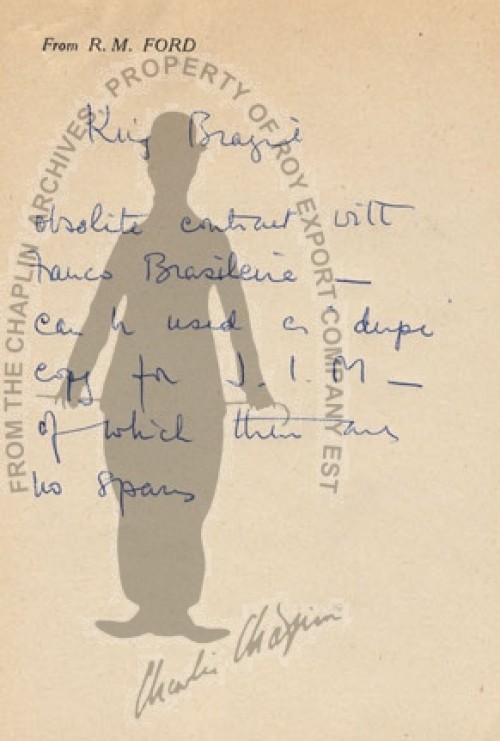 From R. M. FORD
FROM THE CHAPLIN ARCHIVES. PROPERTY OF ROY EXPORT COMPANY EST
King Brazil
obsolete contract with
Franco Brasileira —
can be used as 'dupe'
copy for J. I. M —
of which there are
no spares
Charlie Chaplin